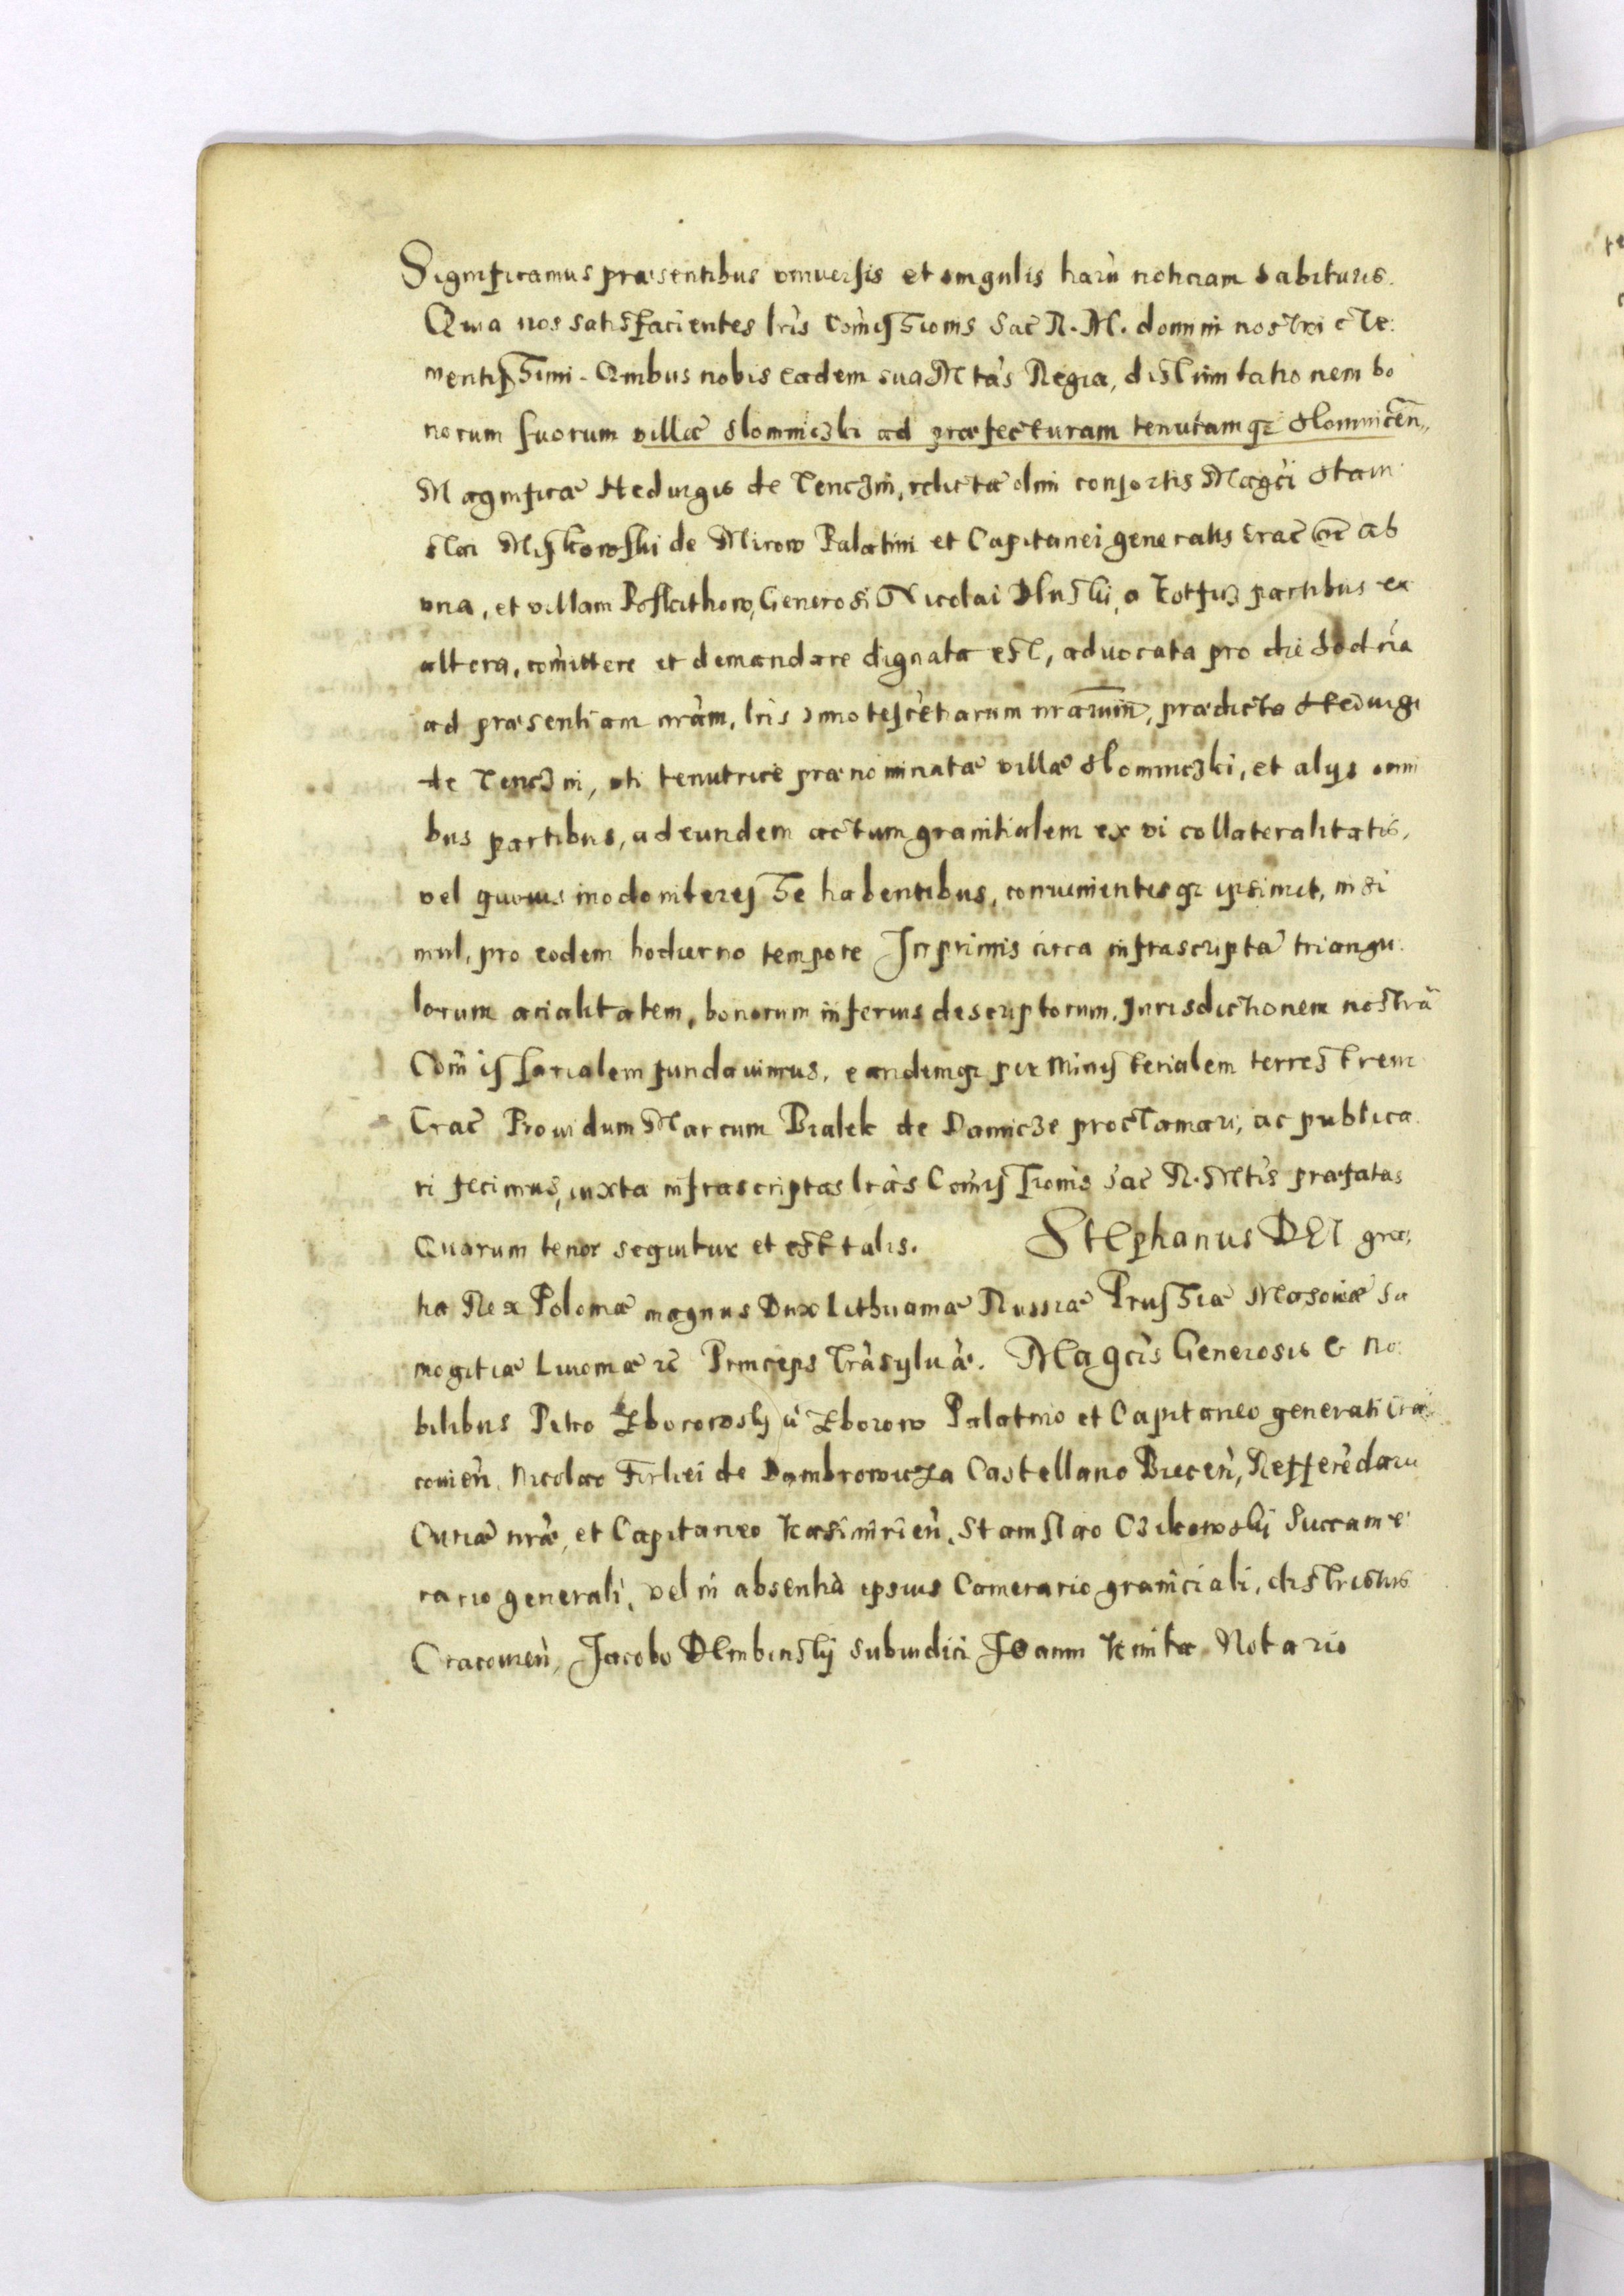 Significamus præsentibus vniuersis et singulis harū noticiam habituris.
Quia nos satisfacientes lris Com̄issionis Sac R. M. domini nostri cle:
mentissimi. Quibus nobis eadem sua Mtas Regia, distimitationem bo
norum suorum villæ Slomniczki ad præfecturam tenutamqꝫ Slomnicen̄,
Magnificæ Heduigis de Tenczin, relictæ olim consortis Magci Stani
slai Miskowski de Mirow Palatini et Capitanei generalis Crac etc ab
vna, et villam Poskithow, Generosi Nicolai Dluski, a Kotfis partibus ex
altera, com̄ittere et demandare dignata est, aduocata pro die hodrna
ad præsentiam nram, lris innotescētiarum nrarum, prædicta Heduigi
de Tenczin, vti tenutrice prænominatæ villæ Slomniczki, et alijs omni
bus partibus, ad eundem actum granitialem ex vi collateralitatis,
vel quouis modo interesse habentibus, conuenientesqꝫ ipsimet, in si
mul, pro eodem hodierno tempore Inprimis circa infrascriptā triangu
lorum acialitatem, bonorum inferius descriptorum, Jurisdictionem nostrā
Com̄issarialem fundauimus, eandemqꝫ per Ministerialem terrestrem
Crac Prouidum Marcum Bialek de Damicze proclamari, ac publica
ri fecimus, iuxta infrascriptas lras Com̄issionis Sac R. Mtis præfatas
Quarum tenor sequitur et est talis. Stephanus DEI gra,
tia Rex Poloniæ magnus Dux Lithuaniæ Russiæ Prussiæ Masouiæ Sa
mogitiæ Liuoniæ ꝛc Princeps Trāsyluāæ. Magcis Generosis & No
bilibus Petro Zborowskj à Zborow Palatino et Capitaneo generali Cra
couien̄, Nicolao Firlrei de Dambrowicza Castellano Biecen̄, Refferēdariu
Curiæ nræ, et Capitaneo Kasimirien̄, Stanislao Czikowski Succame
rario generali, vel in absentia ipsius Camerario graniciali, districtus
Cracouien̄, Jacobo Dembinskij Subiudici Joanni Kmitæ Notario